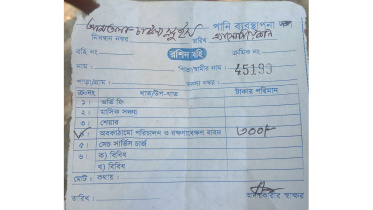 পানি ব্যবস্থাপনা
নিবন্ধন নম্বর
বহি নং- রশিদ বহি ক্রমিক নং-
নাম : পিতা/স্বামীর নাম : 45193
পাড়া/গ্রাম : সদস্য নম্বর :
ক্রঃনং খাত/উপ-খাত টাকার পরিমান
১। ভর্তি ফি
২। মাসিক সঞ্চয়
৩। শেয়ার
৪। অবকাঠামো পরিচালন ও রক্ষণাবেক্ষণ বাবদ ৩০০/-
৫। সেচ সার্ভিস চার্জ
৬। ক) বিবিধ
খ) বিবিধ
মোট : কথায় :
তারিখ : আদায়কারীর স্বাক্ষর